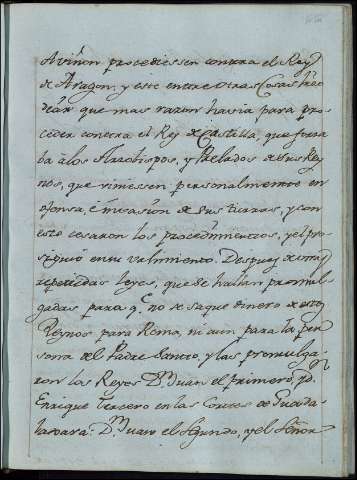 Aviñon procediessen contra el Rey
de Aragon, y este entre otras Cosas
que mas razon havia para pro
ceder contra el Rey de Castilla, que fuera
ba à los Arzobispos, y Prelados de sus Rey
nos, que viniessen personalmente en
ofensa, è invasion de sus tierras, y con
esto cesaron los procedimientos, y el pro
siguiò en su valimiento. Despues
repetidas leyes, que se hallan promul
gadas para q.e no se saque dinero de estos
Reynos para Roma, ni aun para la per
sona del Padre Santo, y las promulga
ron los Reyes D.n Juan el primero, D.n
Enrique Tercero en las Cortes de Guada
laxara: D.n Juan el Segundo, y el Señor